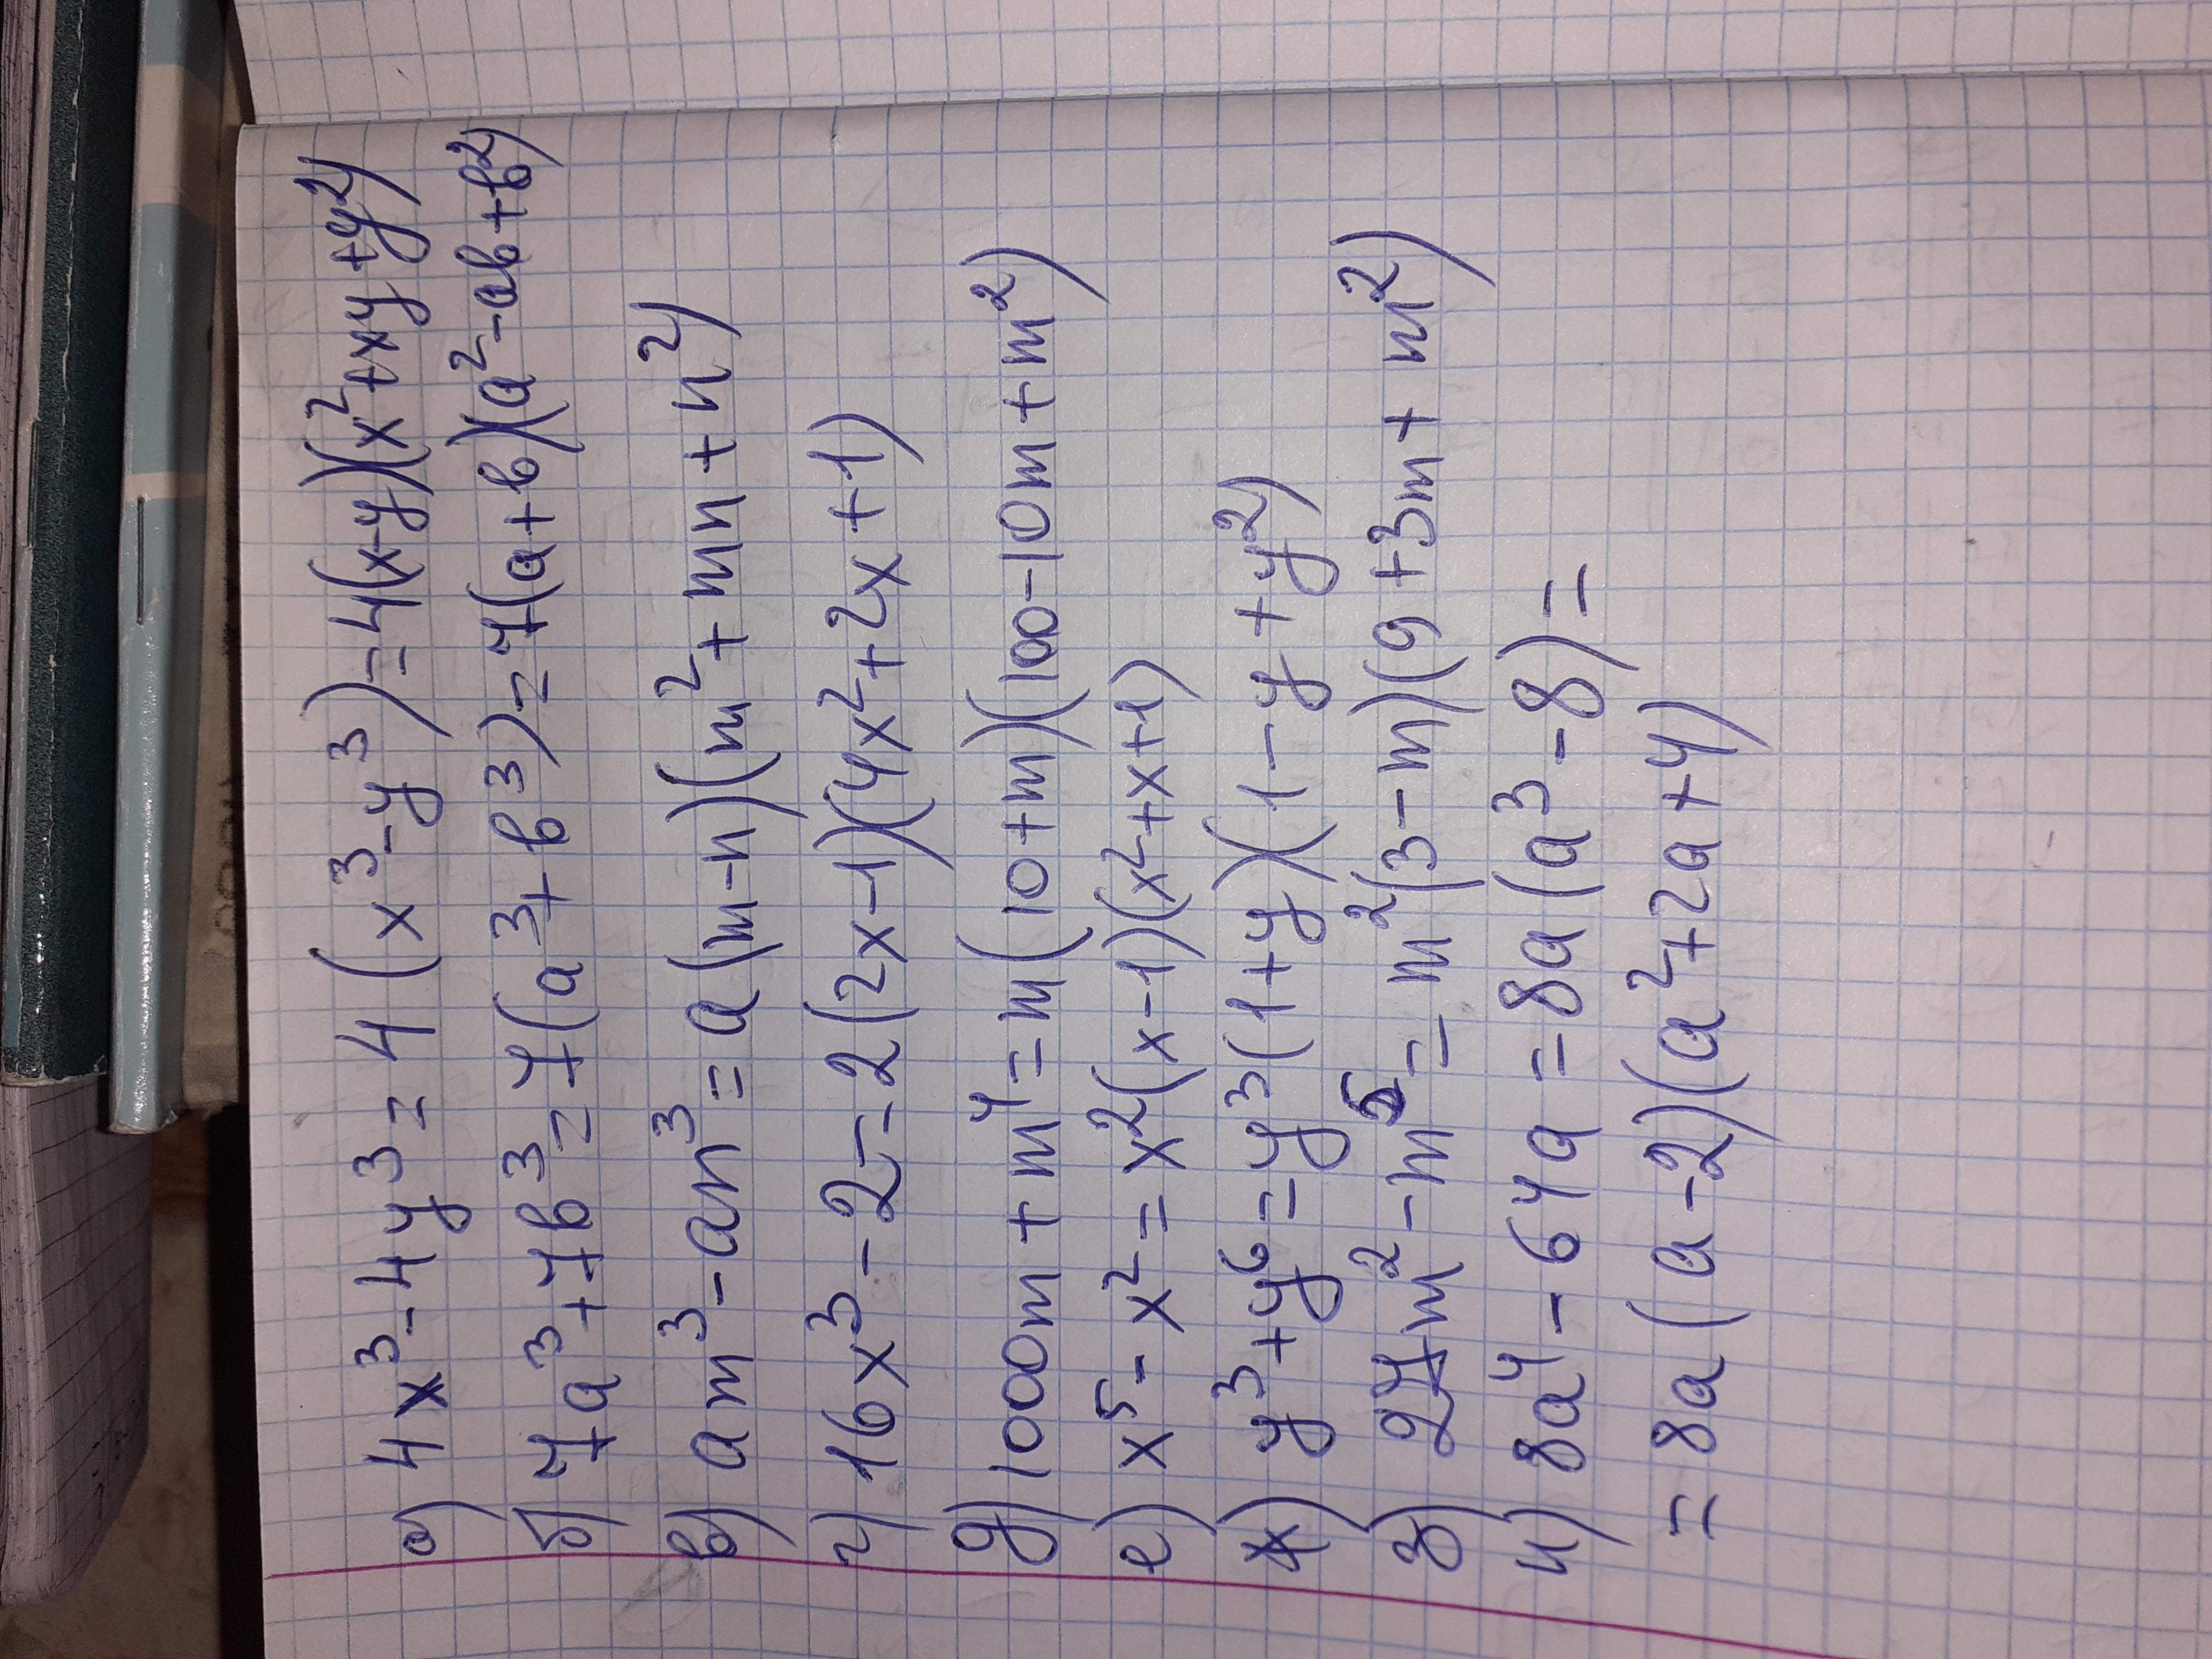 а) 4x³-4y³=4(x³-y³)=4(x-y)(x²+xy+y²)
б) 7a³+7b³=7(a³+b³)=7(a+b)(a²-ab+b²)
в) am³-an³=a(m-n)(m²+mn+n²)
г) 16x³-2=2(2x-1)(4x²+2x+1)
д) 1000m+m⁴=m(10+m)(100-10m+m²)
е) x⁵-x²=x²(x-1)(x²+x+1)
ж) y³+y⁶=y³(1+y)(1-y+y²)
з) 27m²-m⁵=m²(3-m)(9+3m+m²)
и) 8a⁴-64a=8a(a³-8)=
=8a(a-2)(a²+2a+4)